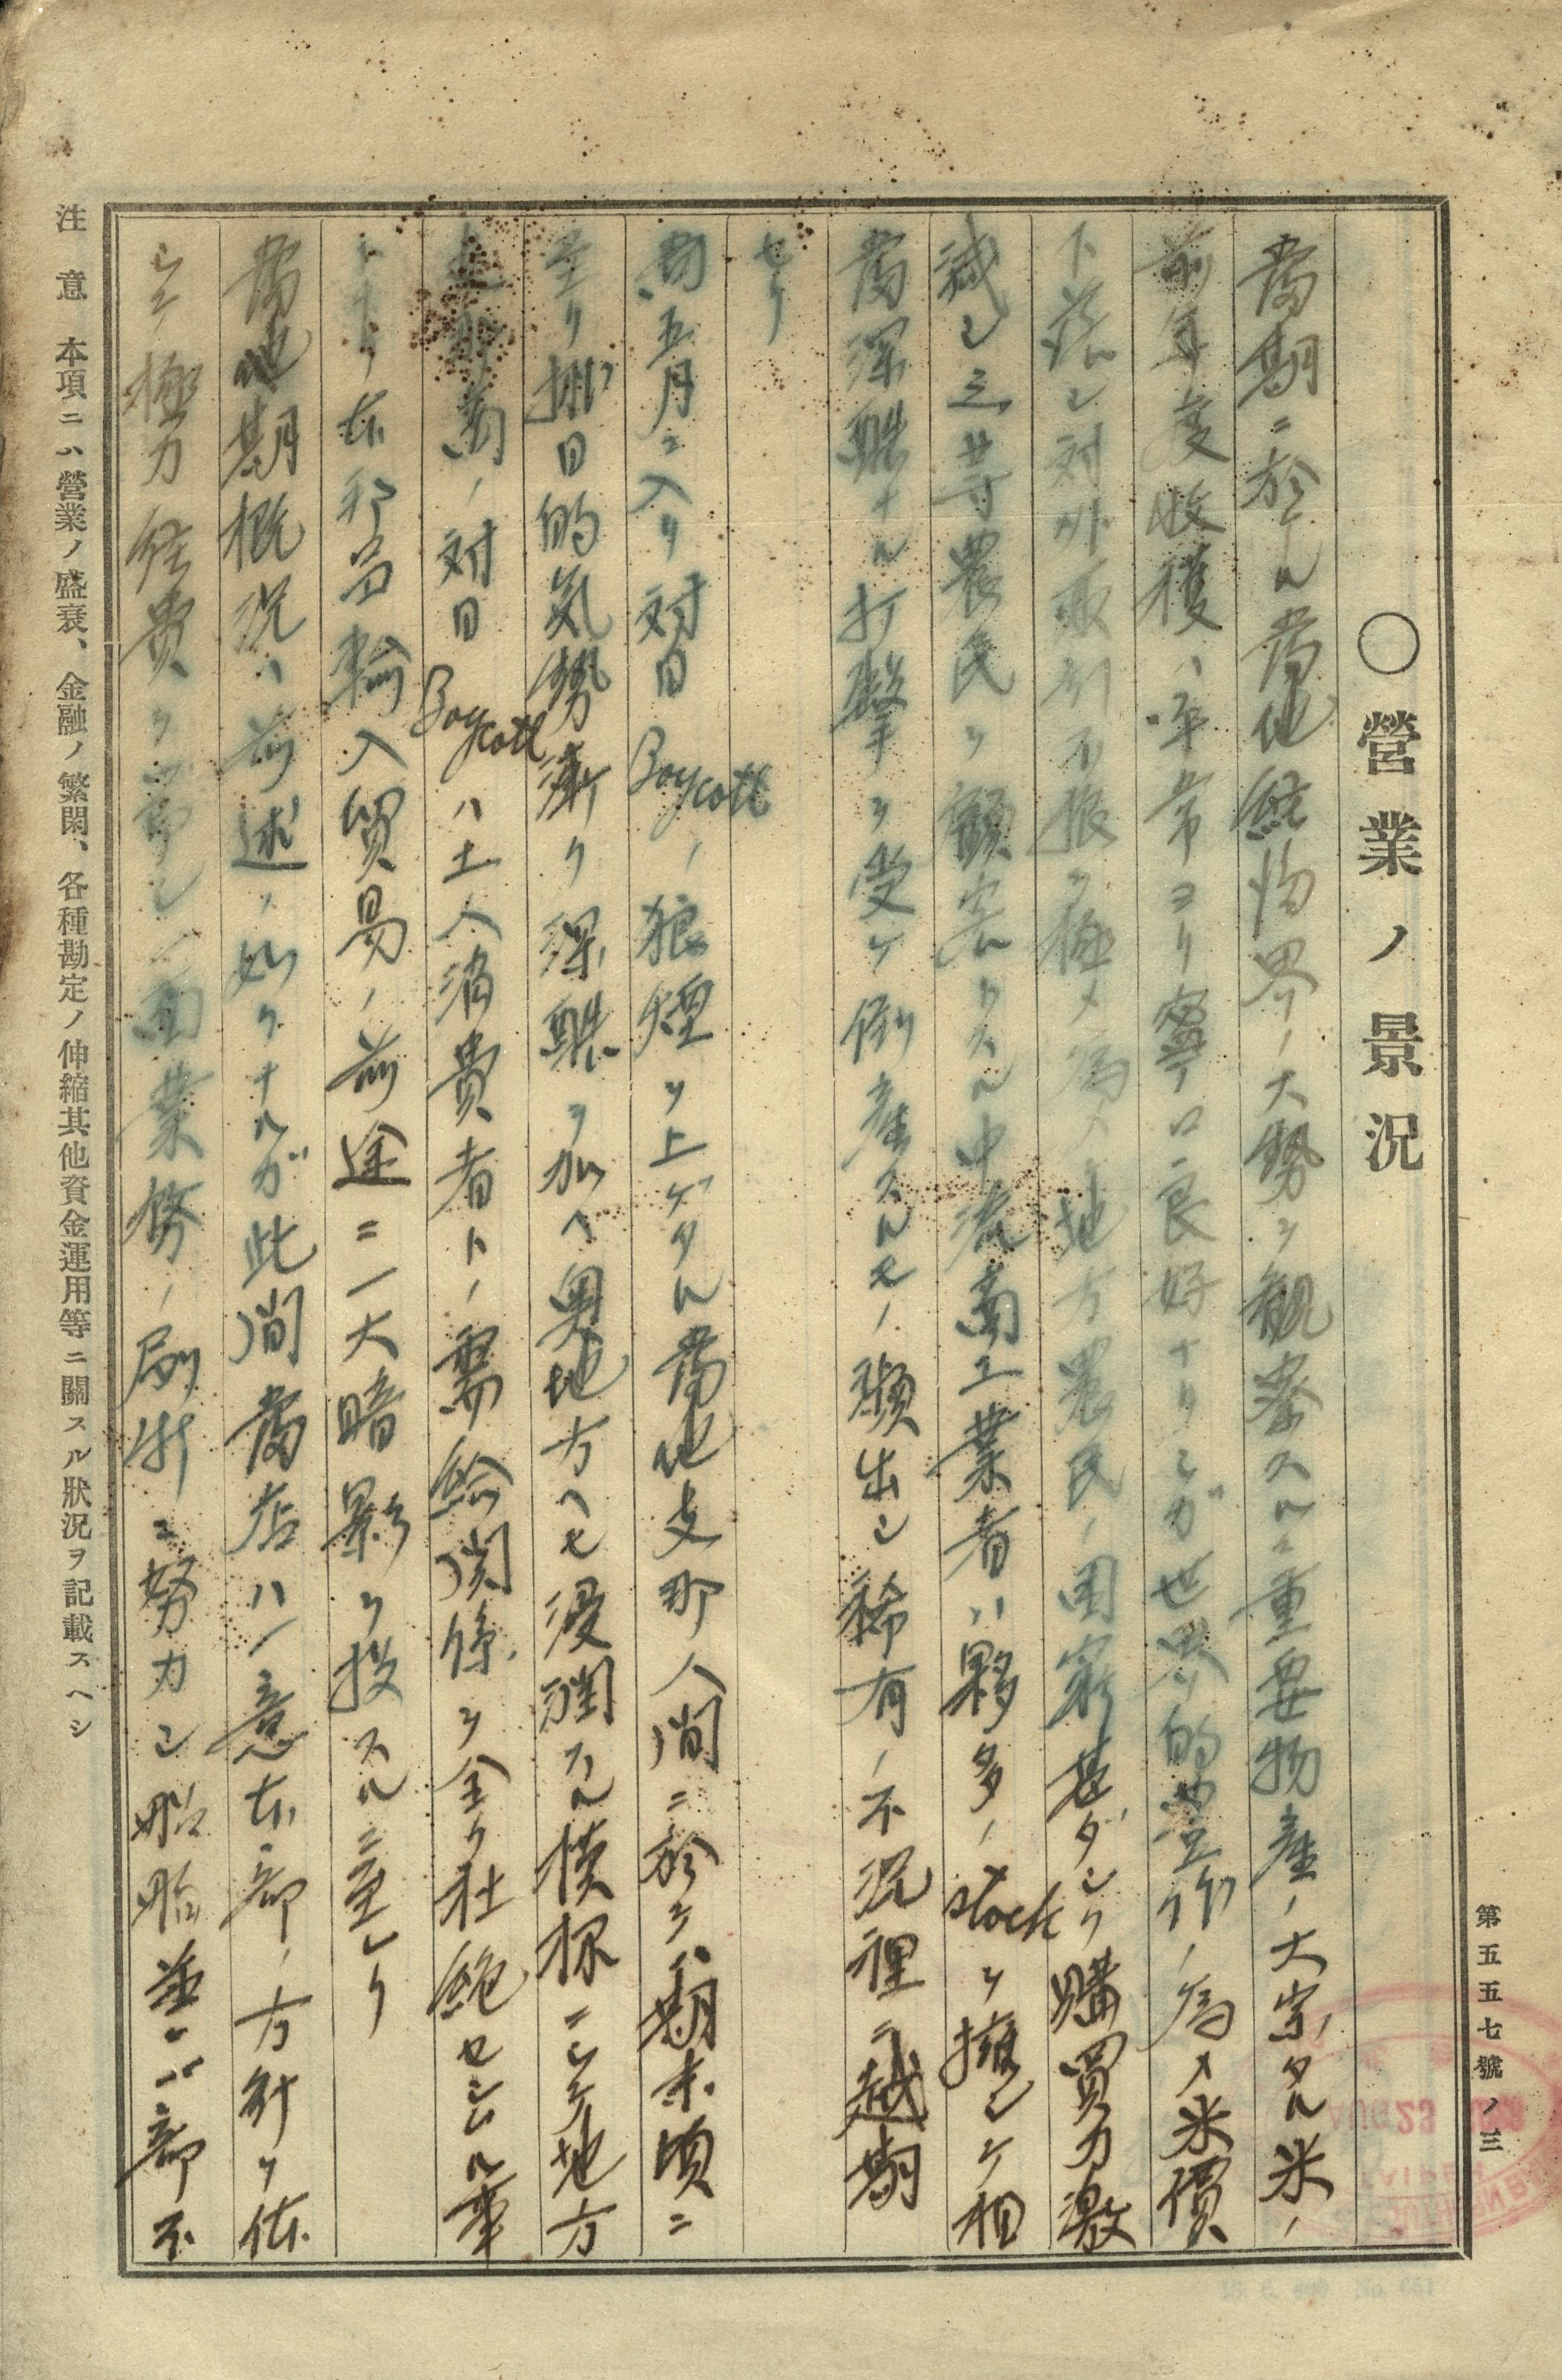 ○營業ノ景況
當期ニ於ケル當地經濟界ノ大勢ヲ觀察スルニ重要物産ノ大宗タル米ノ
前年度收穫ハ平常ヨリ寧ロ良好ナリシガ世界的豊作ノ為メ米價
下落シ対外取引不振ヲ極メ為メニ地方農民ノ困窮甚ダシク購買力激
減シ之等農民ヲ顧客トスル中流商工業者ハ夥多ノStockヲ擁シテ相
當深酷ナル打撃ヲ受ケ倒産スルモノ頻出シ稀有ノ不況裡ニ越期
セリ
尚五月ニ入リ対日Boycottノ狼煙ヲ上ゲタル當地支那人間ニ於テハ期末頃ニ
至リ排日的気勢漸ク深酷ヲ加ヘ奥地方ヘモ浸潤スル模様ニシテ地方
支那商ノ対日Boycottハ土人消費者トノ需給関係ヲ全ク杜絶セシムル事
トナリ本邦品輸入貿易ノ前途ニ一大暗影ヲ投スルニ至レリ
當地期概況ハ前述ノ如クナルガ此間當店ハ一意本部ノ方針ヲ体
シテ極力経費ヲ節シ一面業務ノ刷新ニ努力シ
第五五七號ノ三
注意 本項ニハ營業ノ盛衰、金融ノ繁閑、各種勘定ノ伸縮其他資金運用等ニ關スル狀況ヲ記載スヘシ